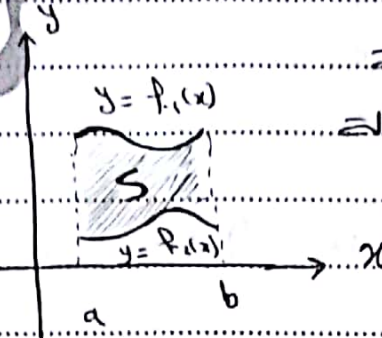 y
y = f₁(x)
S
y = f₂(x)
x
a
b